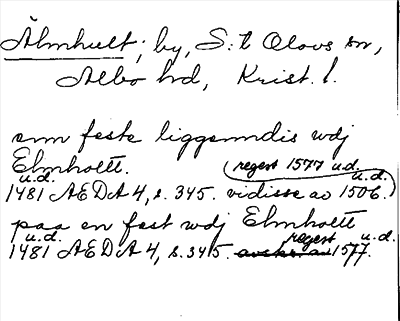 Älmhult, by, S:t Olovs sn,
Albo hd, Krist. l.
em feste liggenndis wdj
Elmholtt. (regest 1577 u.d.
u.d. u.d.
1481 ÆDA 4, s. 345. vidisse av 1506.)
paa en fest wdj Elmholtt
u.d. regest u.d.
1481 ÆDA 4, s. 345. 1577.